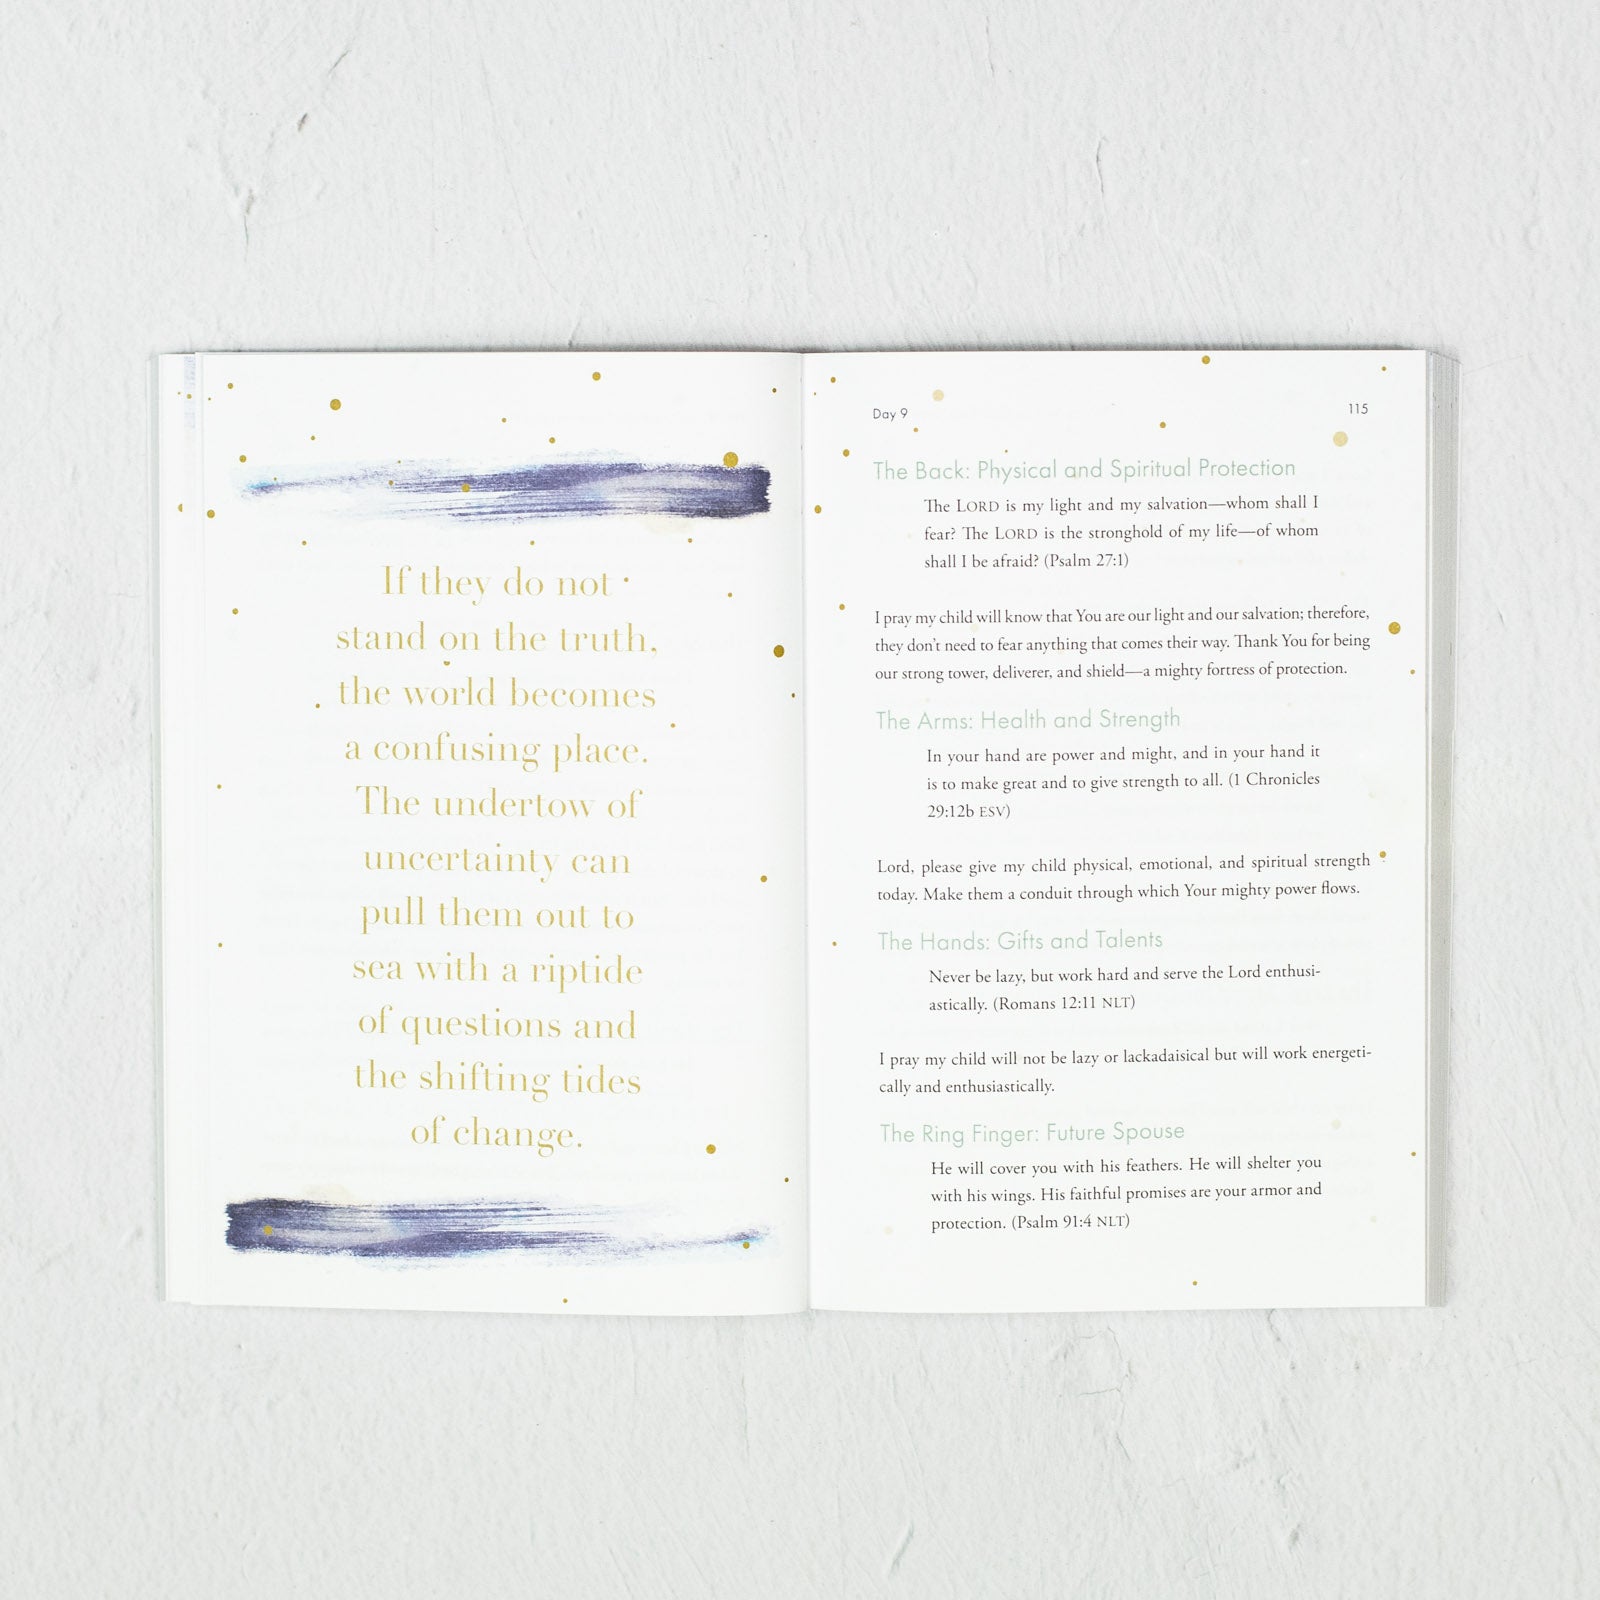 If they do not
stand on the truth,
the world becomes
a confusing place.
The undertow of
uncertainty can
pull them out to
sea with a riptide
of questions and
the shifting tides
of change.
Day 9
115
The Back: Physical and Spiritual Protection
The LORD is my light and my salvation—whom shall I
fear? The LORD is the stronghold of my life—of whom
shall I be afraid? (Psalm 27:1)
I pray my child will know that You are our light and our salvation; therefore,
they don't need to fear anything that comes their way. Thank You for being
our strong tower, deliverer, and shield—a mighty fortress of protection.
The Arms: Health and Strength
In your hand are power and might, and in your hand it
is to make great and to give strength to all. (1 Chronicles
29:12b ESV)
Lord, please give my child physical, emotional, and spiritual strength
today. Make them a conduit through which Your mighty power flows.
The Hands: Gifts and Talents
Never be lazy, but work hard and serve the Lord enthusi-
astically. (Romans 12:11 NLT)
I pray my child will not be lazy or lackadaisical but will work energeti-
cally and enthusiastically.
The Ring Finger: Future Spouse
He will cover you with his feathers. He will shelter you
with his wings. His faithful promises are your armor and
protection. (Psalm 91:4 NLT)